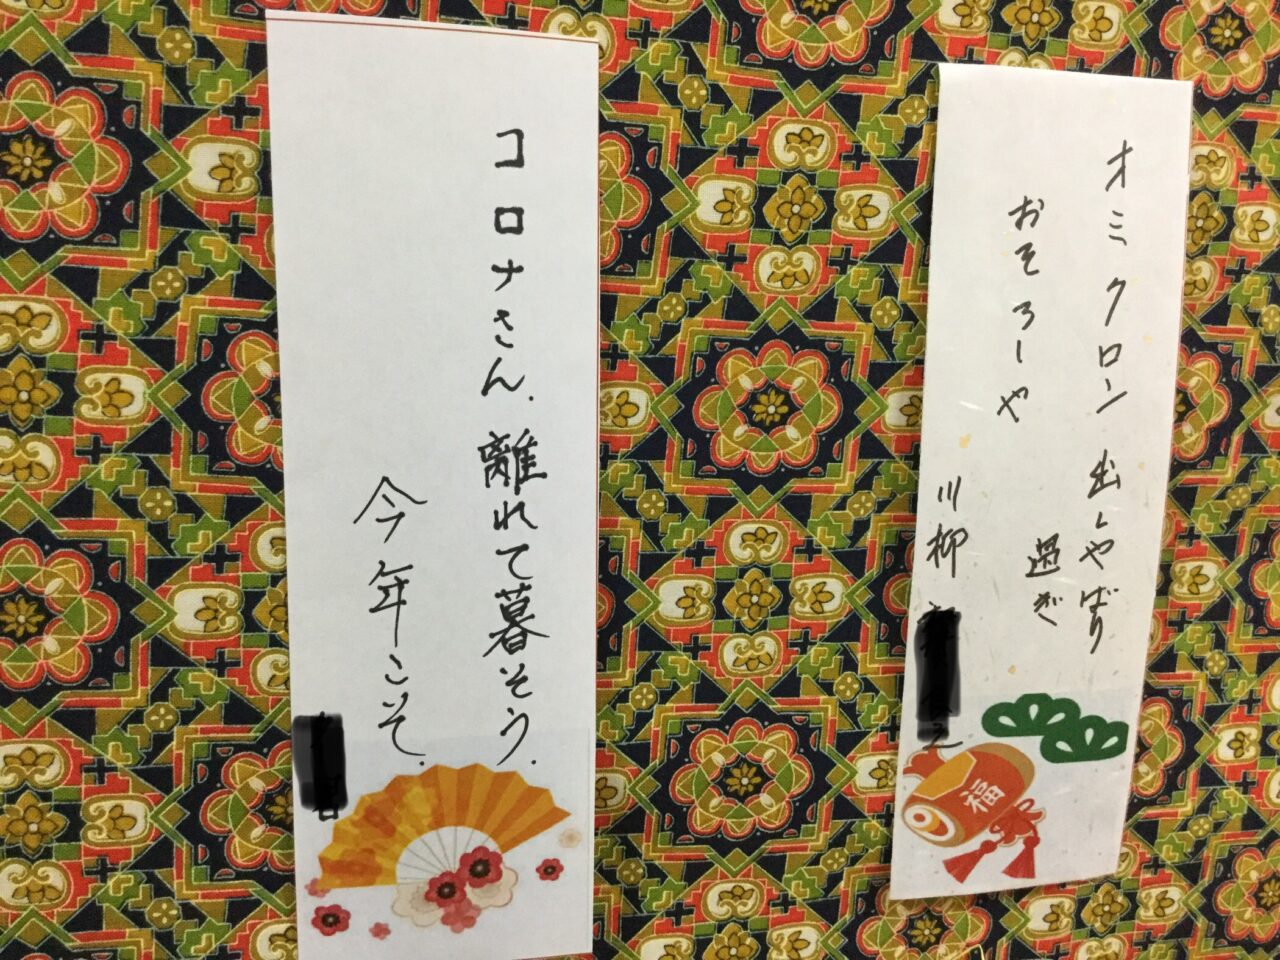 オミクロン 出しやばり
過ぎ
おそろしや
川柳
福
コロナさん、離れて暮そう。
今年こそ。